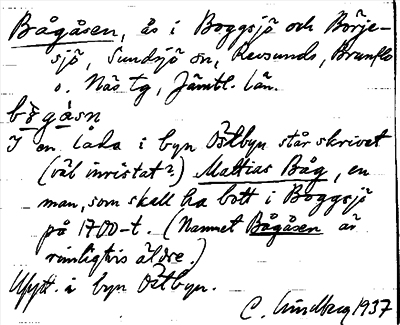 Bågåsen, ås i Boggsjö och Börje-
sjö, Sundsjö sn, Revsunds, Brunflo
o. Näs tg, Jämtl. län.
bɡåsn
I en låda i byn Östbyn står skrivet
(väl inristat?) Mattias Båg, en
man, som skall ha bott i Boggsjö
på 1700-t. (Namnet Bågåsen är
rimligtvis äldre.)
Uppt. i byn Östbyn.
C. Lindberg 1937